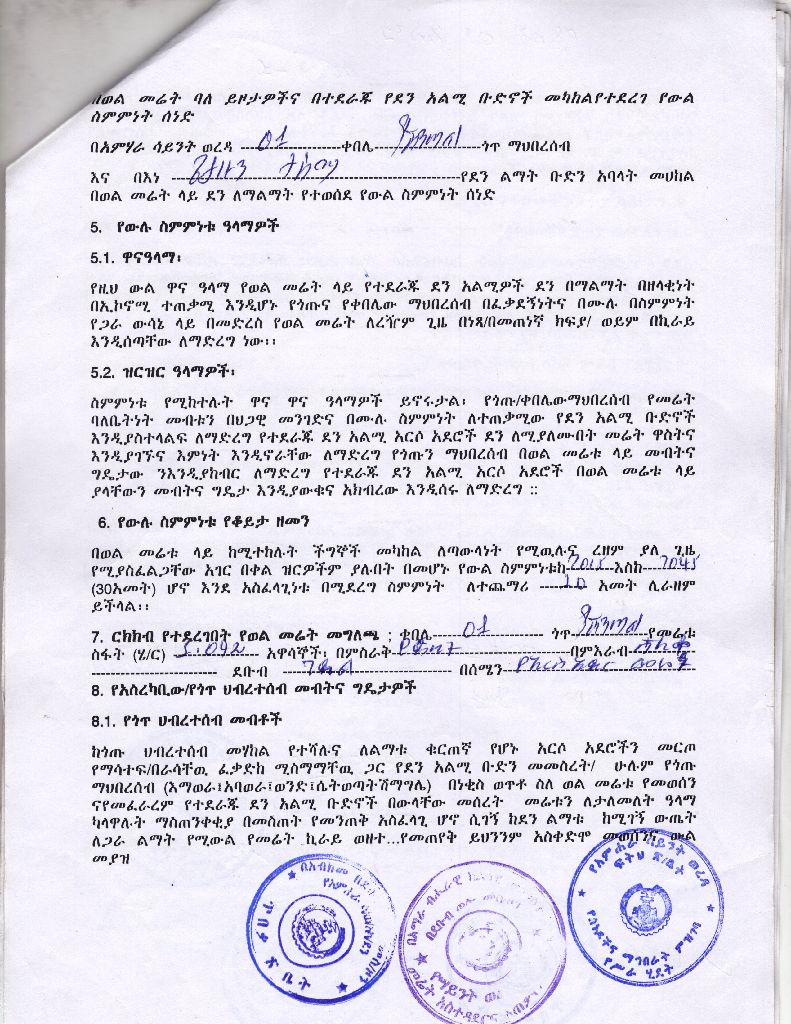 በወል መሬት ባለ ይዞታዎችና በተደራጁ የደን አልሚ ቡድኖች መካከልየተደረገ የውል
ስምምነት ሰነድ
በአምሃራ ሳይንት ወረዳ ---01---ቀበሌ------ጎጥ ማህበረሰብ
እና በእነ ------የደን ልማት ቡድን አባላት መሀከል
በወል መሬት ላይ ደን ለማልማት የተወሰደ የውል ስምምነት ሰነድ
5. የውሉ ስምምነቱ ዓላማዎች
5.1. ዋናዓላማ፡
የዚህ ውል ዋና ዓላማ የወል መሬት ላይ የተደራጁ ደን አልሚዎች ደን በማልማት በዘላቂነት
በኢኮኖሚ ተጠቃሚ እንዲሆኑ የጎጡና የቀበሌው ማህበረሰብ በፈቃደኝነትና በሙሉ በስምምነት
የጋራ ውሳኔ ላይ በመድረስ የወል መሬት ለረዥም ጊዜ በነጻ/በመጠነኛ ክፍያ/ ወይም በኪራይ
እንዲሰጣቸው ለማድረግ ነው፡፡
5.2. ዝርዝር ዓላማዎች፡
ስምምነቱ የሚከተሉት ዋና ዋና ዓላማዎች ይኖሩታል፡ የጎጡ/ቀበሌውማህበረሰብ የመሬት
ባለቤትነት መብቱን በህጋዊ መንገድና በሙሉ ስምምነት ለተጠቃሚው የደን አልሚ ቡድኖች
እንዲያስተላልፍ ለማድረግ የተደራጁ ደን አልሚ አርሶ አደሮች ደን ለሚያለሙበት መሬት ዋስትና
እንዲያገኙና እምነት እንዲኖራቸው ለማድረግ የጎጡን ማህበረሰብ በወል መሬቱ ላይ መብትና
ግዴታው ንእንዲያከብር ለማድረግ የተደራጁ ደን አልሚ አርሶ አደሮች በወል መሬቱ ላይ
ያላቸውን መብትና ግዴታ እንዲያውቁና አክብረው እንዲሰሩ ለማድረግ ::
6. የውሉ ስምምነቱ የቆይታ ዘመን
በወል መሬቱ ላይ ከሚተከሉት ችግኞች መካከል ለጣውላነት የሚዉሉና ረዘም ያለ ጊዜ
የሚያስፈልጋቸው አገር በቀል ዝርዎችም ያሉበት በመሆኑ የውል ስምምነቱከ-2015--እስከ---2045
(30አመት) ሆኖ እንደ አስፈላጊነቱ በሚደረግ ስምምነት ለተጨማሪ ---10--- አመት ሊራዘም
ይችላል፡፡
7. ርክክብ የተደረገበት የወል መሬት መግለጫ ; ቀበሌ---01--- ጎጥ------የመሬቱ
ስፋት (ሄ/ር) --5.092-- አዋሳኞች፡ በምስራቅ------በምእራብ---
--- ደቡብ ------ በሰሜን ---
8. የአስረካቢው/የጎጥ ህብረተሰብ መብትና ግዴታዎች
8.1. የጎጥ ህብረተሰብ መብቶች
ከጎጡ ህብረተሰብ መሃከል የተሻሉና ለልማቱ ቁርጠኛ የሆኑ አርሶ አደሮችን መርጦ
የማሳተፍ/በራሳቸዉ ፈቃድከ ሚስማማቸዉ ጋር የደን አልሚ ቡድን መመስረት/ ሁሉም የጎጡ
ማህበረሰብ (እማወራ፤አባወራ፤ወንድ፤ሴትወጣትሽማግሌ) በነቂስ ወጥቶ ስለ ወል መሬቱ የመወሰን
ናየመፈራረም የተደራጁ ደን አልሚ ቡድኖች በውላቸው መሰረት መሬቱን ለታለመለት ዓላማ
ካላዋሉት ማስጠንቀቂያ በመስጠት የመንጠቅ አስፈላጊ ሆኖ ሲገኝ ከደን ልማቱ ከሚገኝ ውጤት
ለጋራ ልማት የሚውል የመሬት ኪራይ ወዘተ...የመጠየቅ ይህንንም አስቀድሞ መወሰንና ውል
መያዝ
የአምሐራ ሳይንት ወረዳ
ፍትህ ጽ/ቤት
የሰነዶችና ማኅበራት ምዝገባ
የሥራ ሂደት
ጽ ቤት